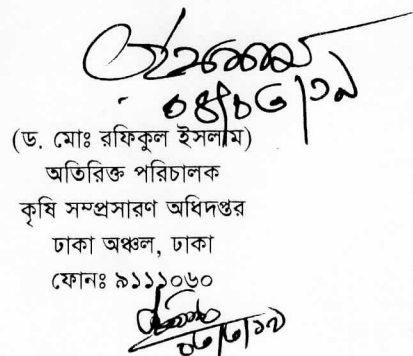 ০৪/০৬/১৯
(ড. মোঃ রফিকুল ইসলাম)
অতিরিক্ত পরিচালক
কৃষি সম্প্রসারণ অধিদপ্তর
ঢাকা অঞ্চল, ঢাকা
ফোনঃ ৯১১১০৬০